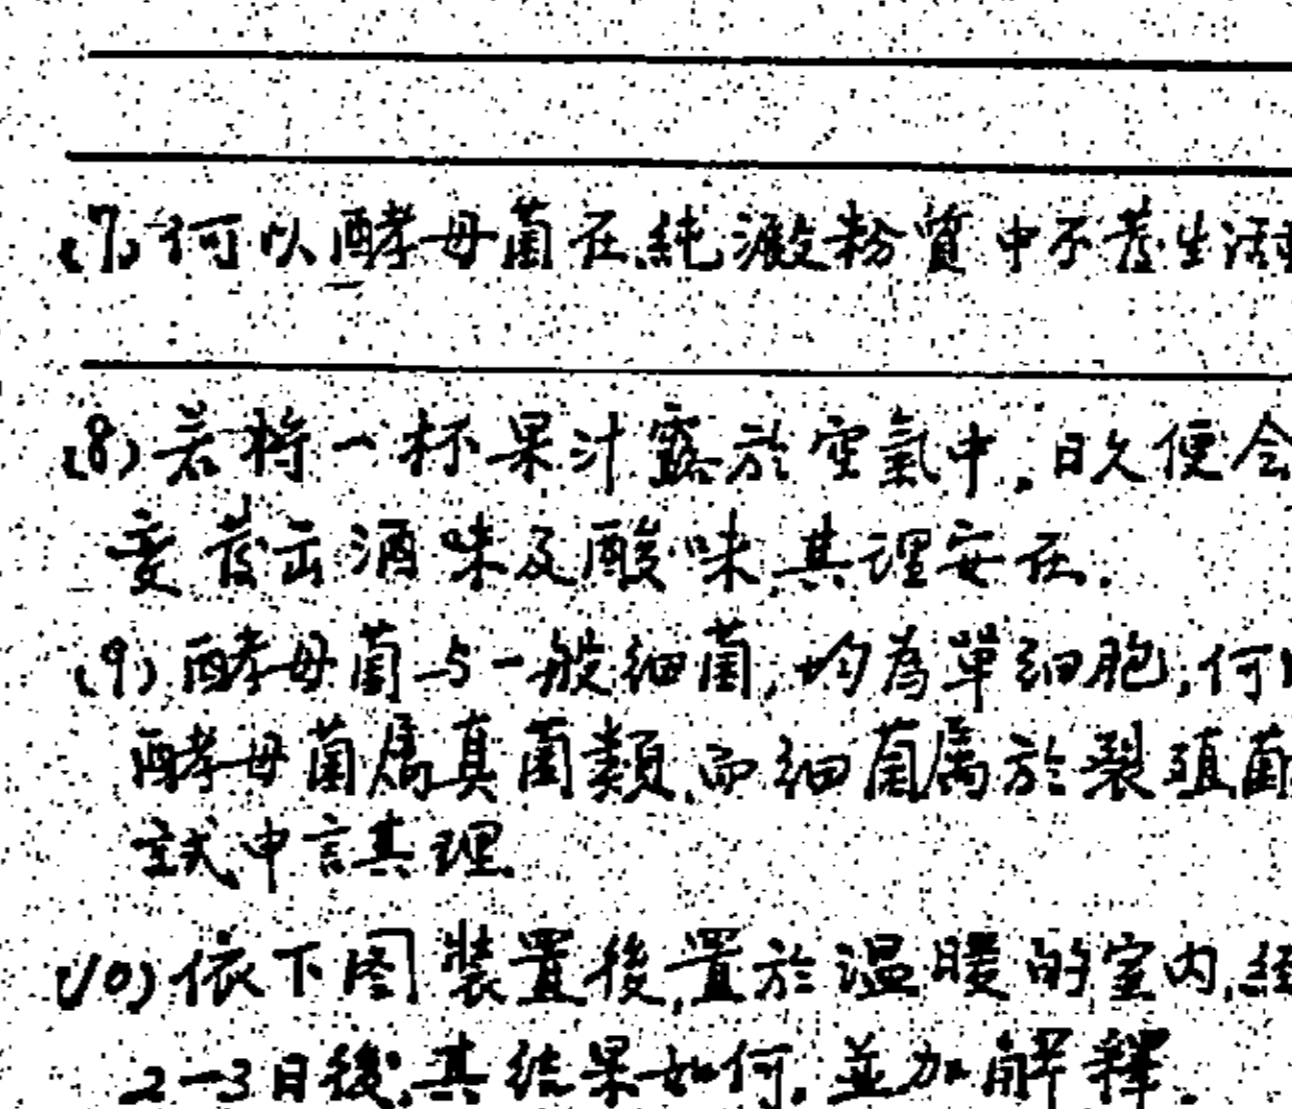 (7) 何以酵母菌在純澱粉質中不養生活
(8) 若將一杯果汁露於空氣中,日久便会
變發出酒味及酸味,其理安在.
(9) 酵母菌与一般細菌,均為單細胞,何
酵母菌属真菌類,而細菌属於裂殖菌
試申言其理.
(10) 依下图裝置後,置於温暖的室内,經
2-3日後,其結果如何,並加解釋.